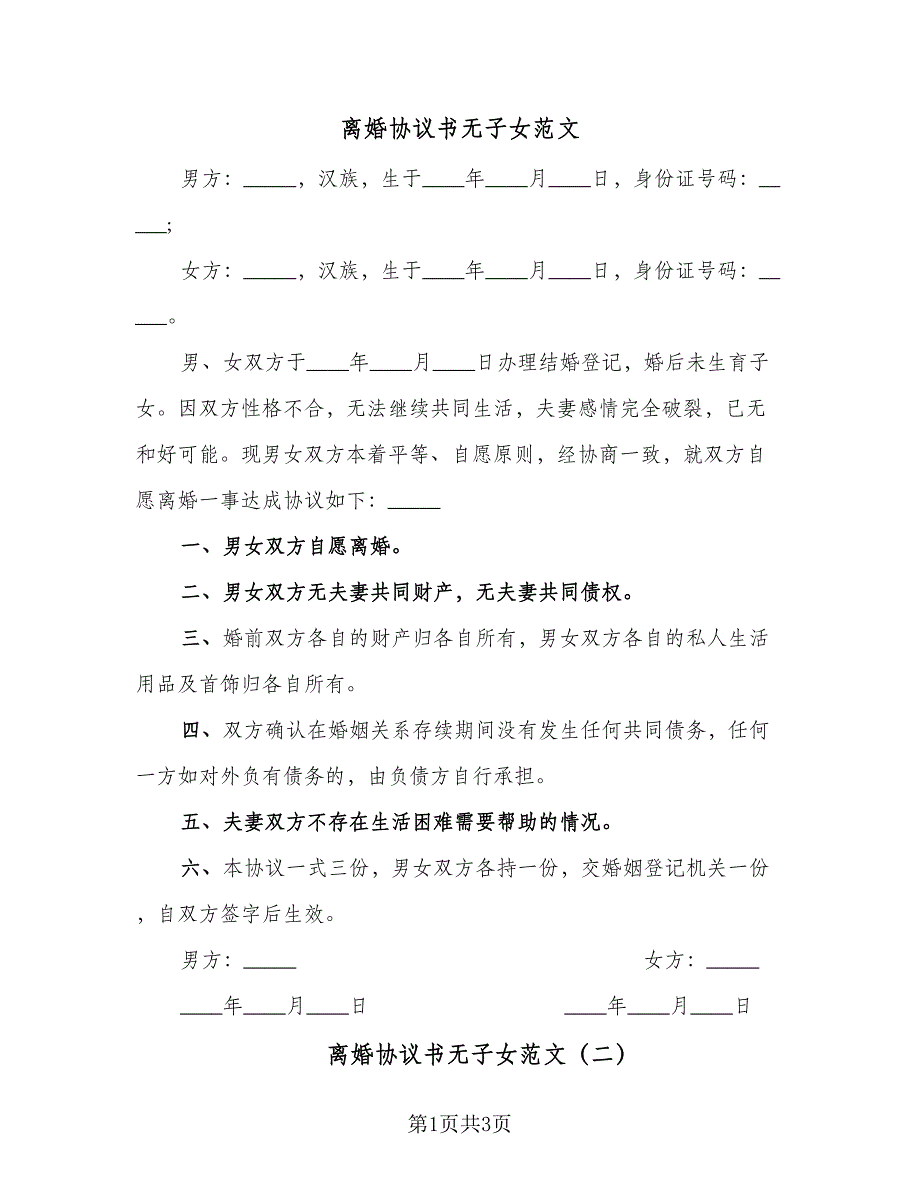 离婚协议书无子女范文
男方：_____，汉族，生于____年____月____日，身份证号码：__
___;
女方：_____，汉族，生于____年____月____日，身份证号码：__
___。
男、女双方于____年____月____日办理结婚登记，婚后未生育子
女。因双方性格不合，无法继续共同生活，夫妻感情完全破裂，已无
和好可能。现男女双方本着平等、自愿原则，经协商一致，就双方自
愿离婚一事达成协议如下：_____
一、男女双方自愿离婚。
二、男女双方无夫妻共同财产，无夫妻共同债权。
三、婚前双方各自的财产归各自所有，男女双方各自的私人生活
用品及首饰归各自所有。
四、双方确认在婚姻关系存续期间没有发生任何共同债务，任何
一方如对外负有债务的，由负债方自行承担。
五、夫妻双方不存在生活困难需要帮助的情况。
六、本协议一式三份，男女双方各持一份，交婚姻登记机关一份
，自双方签字后生效。
男方：_____ 女方：_____
____年____月____日 ____年____月____日
离婚协议书无子女范文（二）
第1页共3页